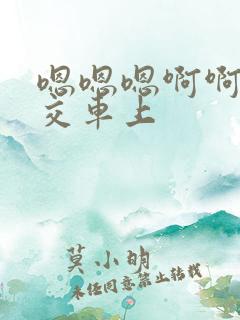 嗯嗯嗯啊啊
交车上
莫小明
未经同意禁止转载